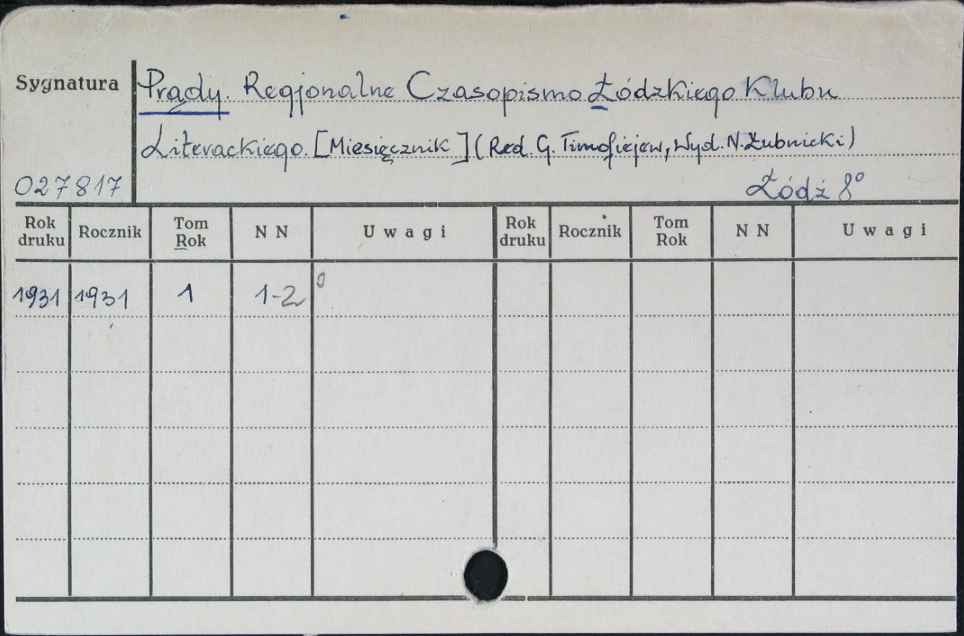 Sygnatura
Prądy. Regjonalne Czasopismo Łódzkiego Klubu
Literackiego. [Miesięcznik] (Red. G. Timofiejew, Wyd. N. Łubnicki)
027817 Łódź 8°
Rok druku Rocznik Tom Rok N N Uwagi Rok druku Rocznik Tom Rok N N Uwagi
1931 1931 1 1-2 0